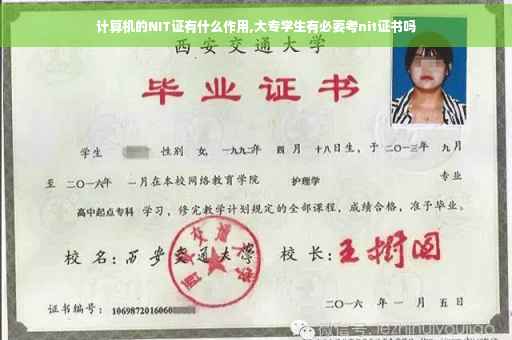 计算机的NIT证有什么作用,大专学生有必要考nit证书吗
西安交通大学
毕业证书
学生 性别 女, 一九九二年 四月 十八日生, 于二〇一三年 九月
至 二〇一六年 一月在本校网络教育学院 护理学 专业
高中起点专科 学习, 修完教学计划规定的全部课程, 成绩合格, 准予毕业。
校 名: 西安交通大学 校 长: 王树国
西安交通大学
证书编号: 1069872016060
二〇一六 年 一 月 五 日
微信号: jezhihuiyoujiao